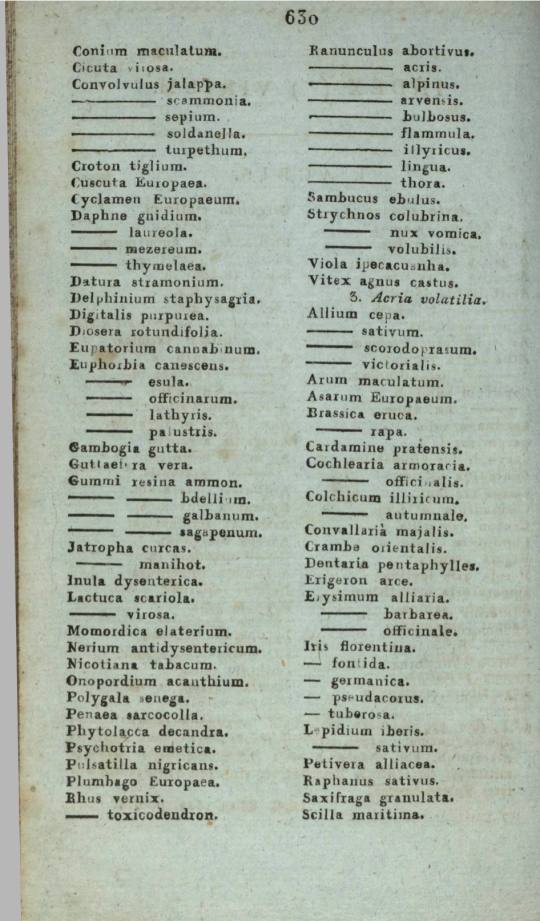 630
Conium maculatum.
Cicuta virosa.
Convolvulus jalappa.
——— scammonia.
——— sepium.
——— soldanella.
——— turpethum.
Croton tiglium.
Cuscuta Europaea.
Cyclamen Europaeum.
Daphne gnidium.
—— laureola.
—— mezereum.
—— thymelaea.
Datura stramonium.
Delphinium staphysagria.
Digitalis purpurea.
Drosera rotundifolia.
Eupatorium cannabinum.
Euphorbia canescens.
—— esula.
—— officinarum.
—— lathyris.
—— palustris.
Gambogia gutta.
Guttaefera vera.
Gummi resina ammon.
—— —— bdellium.
—— —— galbanum.
—— —— sagapenum.
Jatropha curcas.
—— manihot.
Inula dysenterica.
Lactuca scariola.
—— virosa.
Momordica elaterium.
Nerium antidysentericum.
Nicotiana tabacum.
Onopordium acanthium.
Polygala senega.
Penaea sarcocolla.
Phytolacca decandra.
Psychotria emetica.
Pulsatilla nigricans.
Plumbago Europaea.
Rhus vernix.
—— toxicodendron.
Ranunculus abortivus.
——— acris.
——— alpinus.
——— arvensis.
——— bulbosus.
——— flammula.
——— illyricus.
——— lingua.
——— thora.
Sambucus ebulus.
Strychnos colubrina.
—— nux vomica.
—— volubilis.
Viola ipecacuanha.
Vitex agnus castus.
3. Acria volatilia.
Allium cepa.
—— sativum.
—— scorodoprasum.
—— victorialis.
Arum maculatum.
Asarum Europaeum.
Brassica eruca.
—— rapa.
Cardamine pratensis.
Cochlearia armoracia.
—— officinalis.
Colchicum illiricum.
—— autumnale.
Convallaria majalis.
Crambe orientalis.
Dentaria pentaphylles.
Erigeron acre.
Erysimum alliaria.
—— barbarea.
—— officinale.
Iris florentina.
— foetida.
— germanica.
— pseudacorus.
— tuberosa.
Lepidium iberis.
—— sativum.
Petivera alliacea.
Raphanus sativus.
Saxifraga granulata.
Scilla maritima.